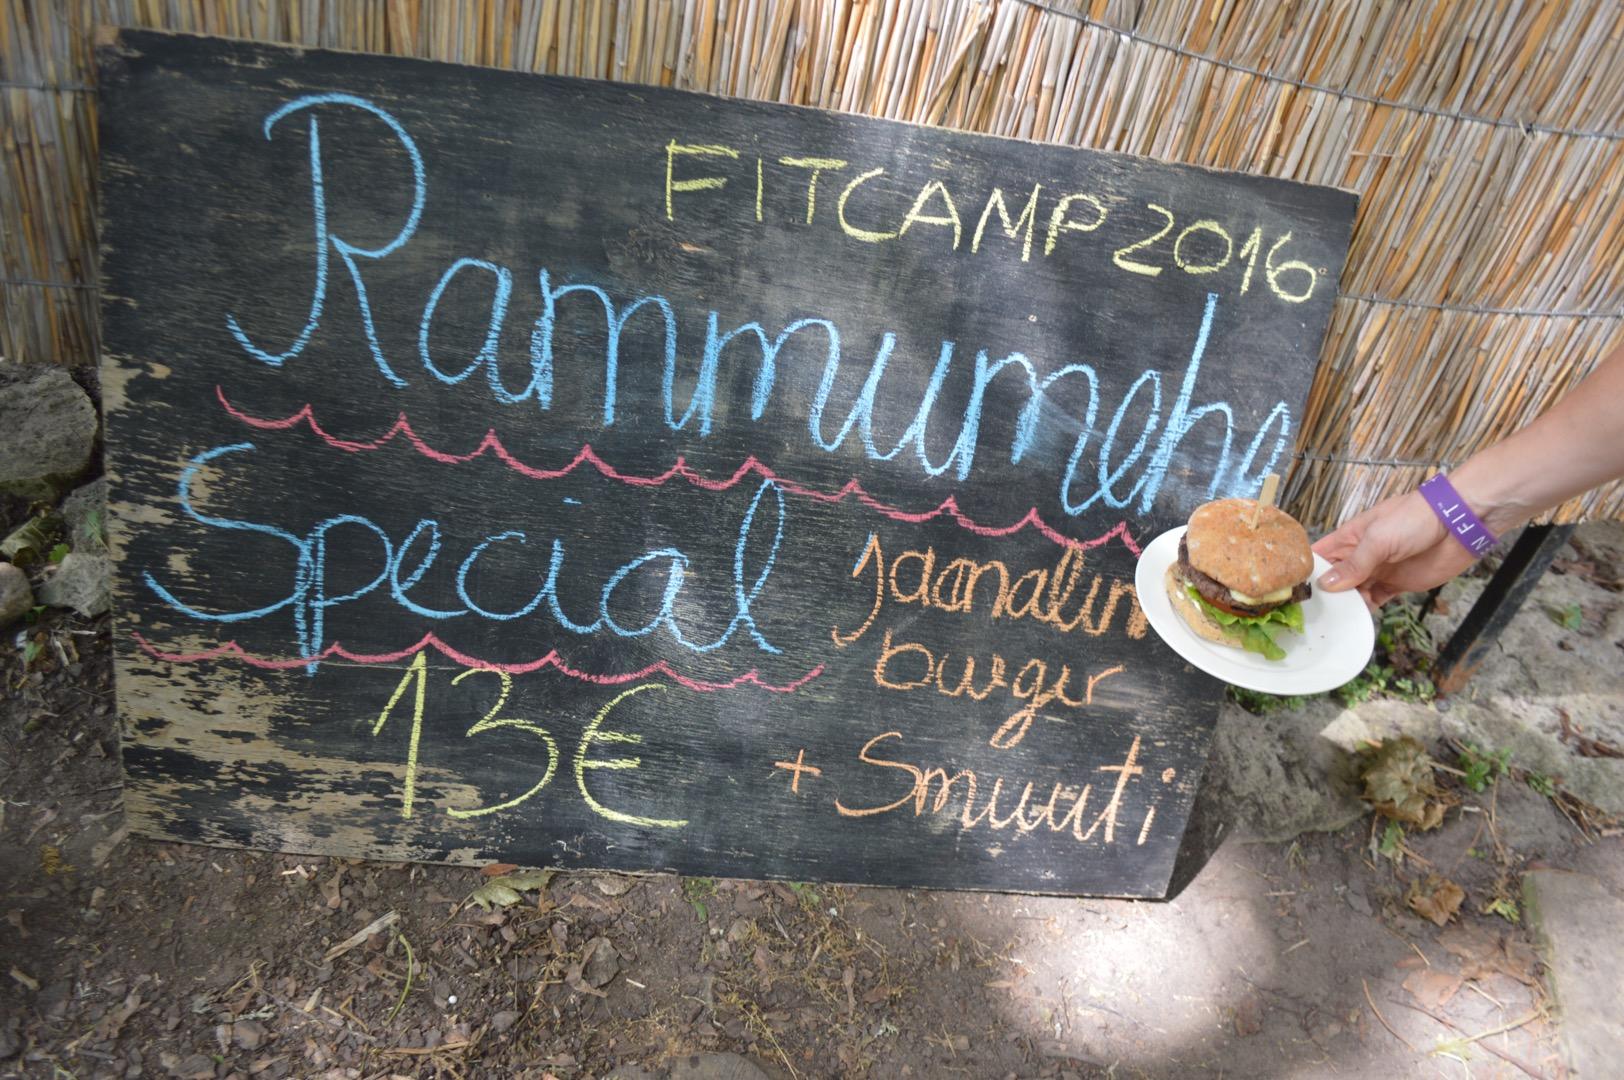 FITCAMP 2016
Rammumehe
Special
jaanalinn
burger
+ Smuuti
13€
N FIT